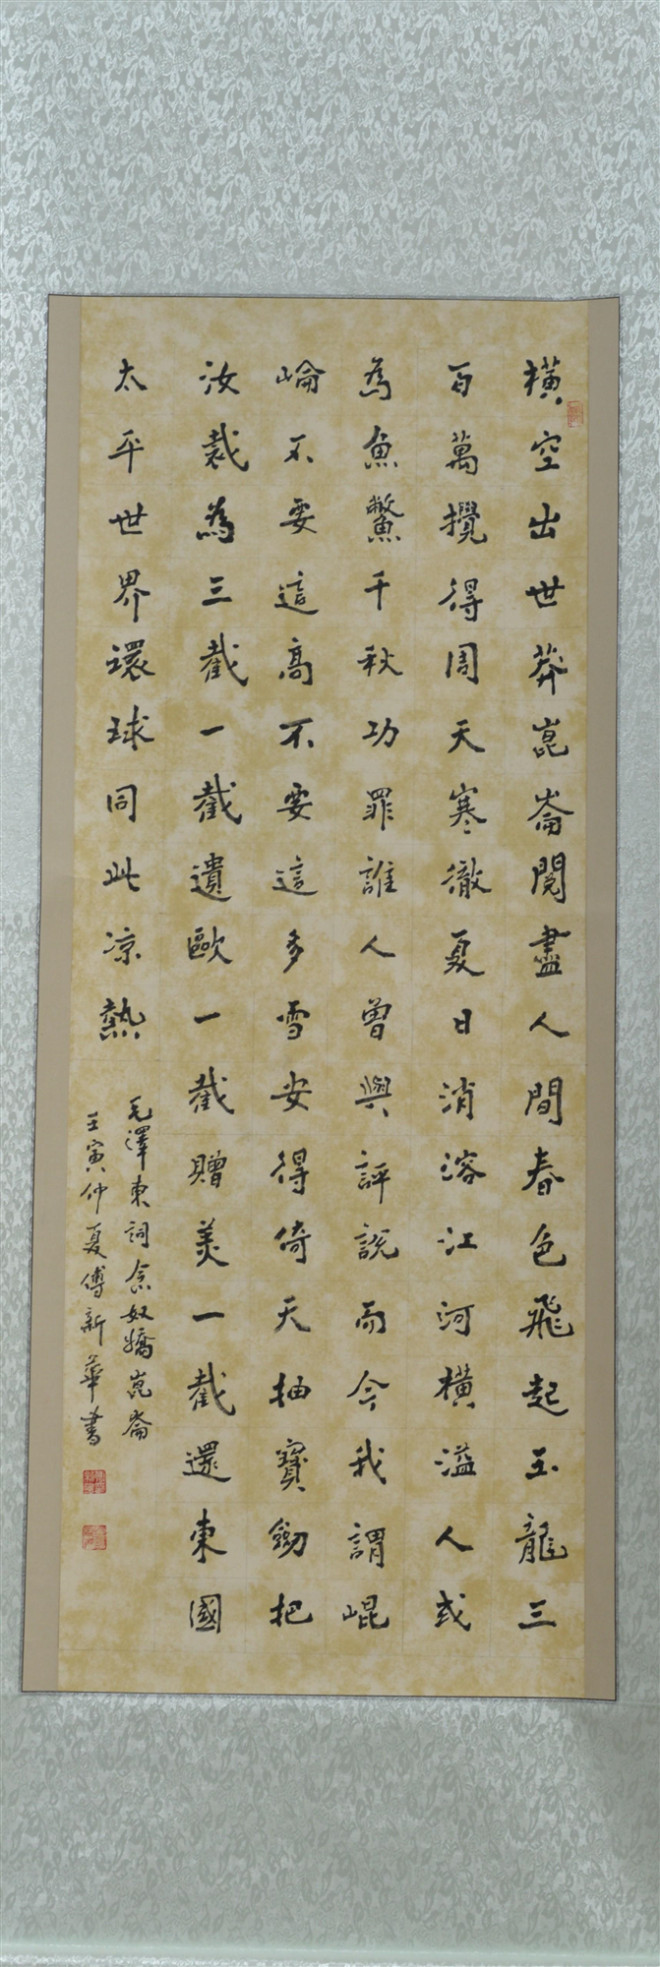 橫空出世莽崑崙閱盡人間春色飛起玉龍三
百萬攪得周天寒徹夏日消溶江河橫溢人或
為魚鱉千秋功罪誰人曾與評說而今我謂崐
崘不要這高不要這多雪安得倚天抽寶劒把
汝裁為三截一截遺歐一截贈美一截還東國
太平世界環球同此凉熱
毛澤東詞念奴嬌崑崙
壬寅仲夏傅新華書